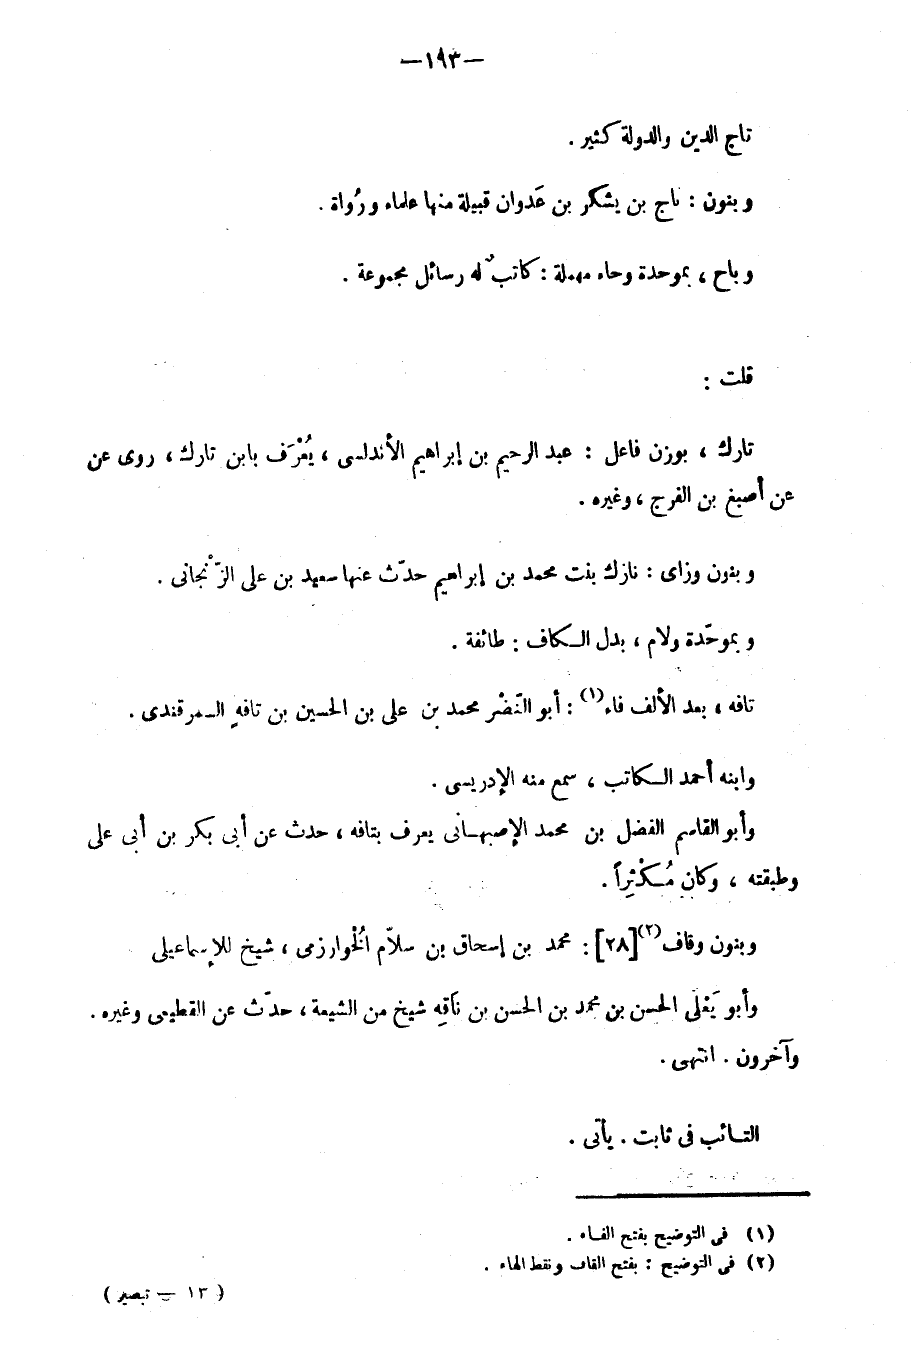 —١٩٣—
تاج الدين والدولة كثير .
وبنون : ناج بن يشكر بن عَدوان قبيلة منها علماء ورُواة .
وباح ، بموحدة وحاء مهملة : كاتبٌ له رسائل مجموعة .
قلت :
تارك ، بوزن فاعل : عبد الرحيم بن إبراهيم الأندلسى ، يُعْرَف بابن تارك ، روى عن
عن أصبغ بن الفرج ، وغيره .
وبنون وزاى : نازك بنت محمد بن إبراهيم حدّث عنها سعيد بن على الزَّنْجانى .
وبموحّدة ولام ، بدل الكاف : طائفة .
تافه ، بعد الألف فاء(١) : أبو النَّضْر محمد بن على بن الحسين بن تافهٍ السمرقندى .
وابنه أحمد الكاتب ، سمع منه الإدريسى .
وأبو القاسم الفضل بن محمد الإصبهانى يعرف بتافه ، حدث عن أبى بكر بن أبى على
وطبقته ، وكان مُكْثِراً .
وبنون وقاف(٢)[٢٨] : محمد بن إسحاق بن سلاّم الْخُوارزمى ، شيخ للإسماعيلى
وأبو يَعْلَى الحسن بن محمد بن الحسن بن نَاقِه شيخ من الشيعة ، حدّث عن القطيعى وغيره .
وآخرون . انتهى .
التائب فى ثابت . يأتى .
(١) فى التوضيح بفتح الفاء .
(٢) فى التوضيح : بفتح القاف ونقط الهاء .
( ١٣ — تبصير )